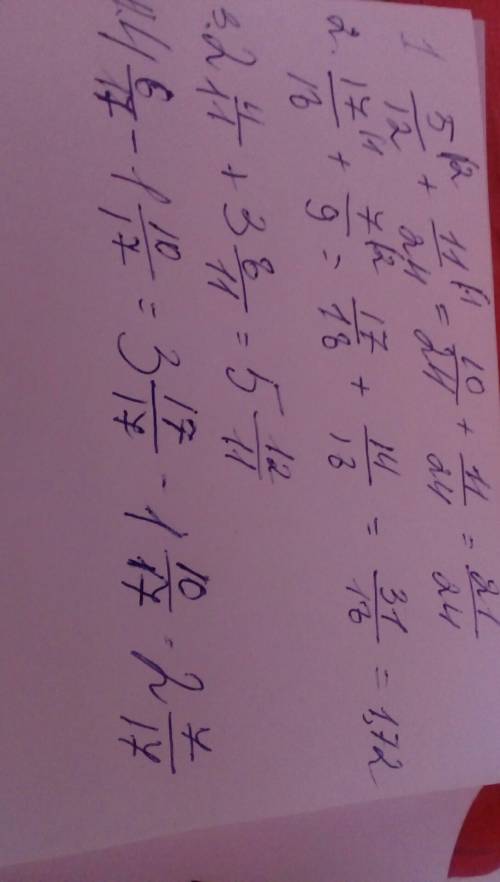 1 5/12 |2 + 11/24 |1 = 10/24 + 11/24 = 21/24
2. 17/18 |1 + 7/9 |2 = 17/18 + 14/18 = 31/18 = 1,72
3. 2 4/11 + 3 8/11 = 5 12/11
4. 4 6/17 - 1 10/17 = 3 17/17 - 1 10/17 = 2 7/17